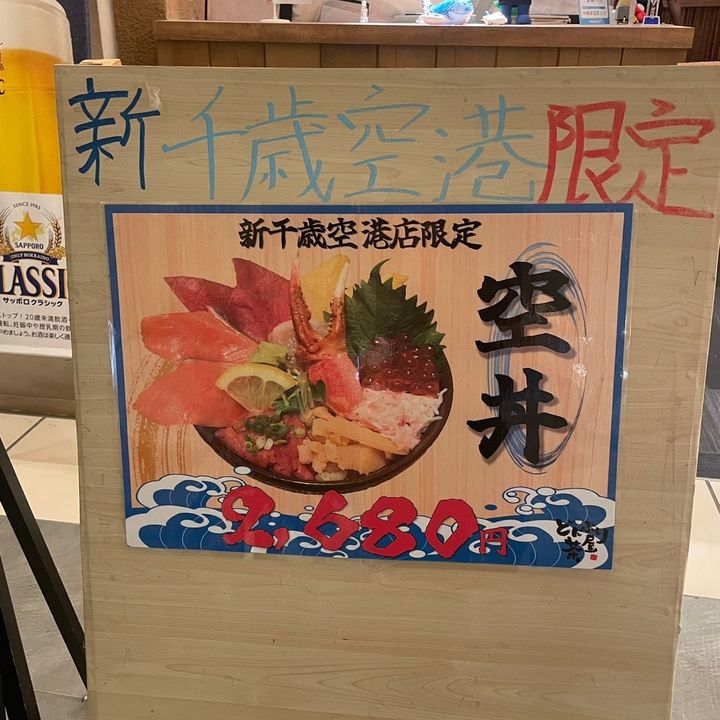 新千歳空港限定
新千歳空港店限定
空丼
2,680円
どんぶり
茶屋
SINCE 1985
SAPPORO
ONLY HOKKAIDO
LASSI
サッポロ クラシック
ストップ!20歳未満飲酒
運転。妊娠中や授乳期の飲
やめましょう。お酒は楽しく適